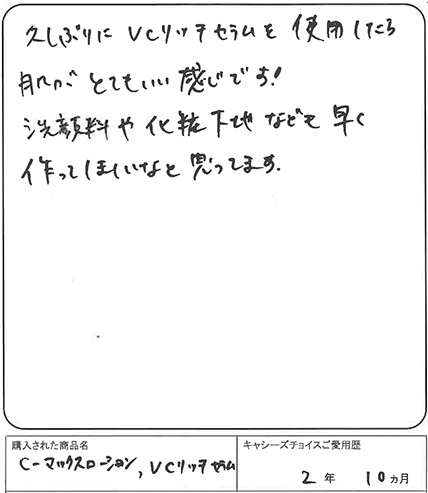 久しぶりに VCリッチセラムを 使用したら
肌が とてもいい 感じです!
洗顔料や 化粧下地 なども 早く
作ってほしいなと 思ってます.
購入された商品名
C-マックスローション, VCリッチセラム
キャシーズチョイスご愛用歴
2 年 10 ヵ月